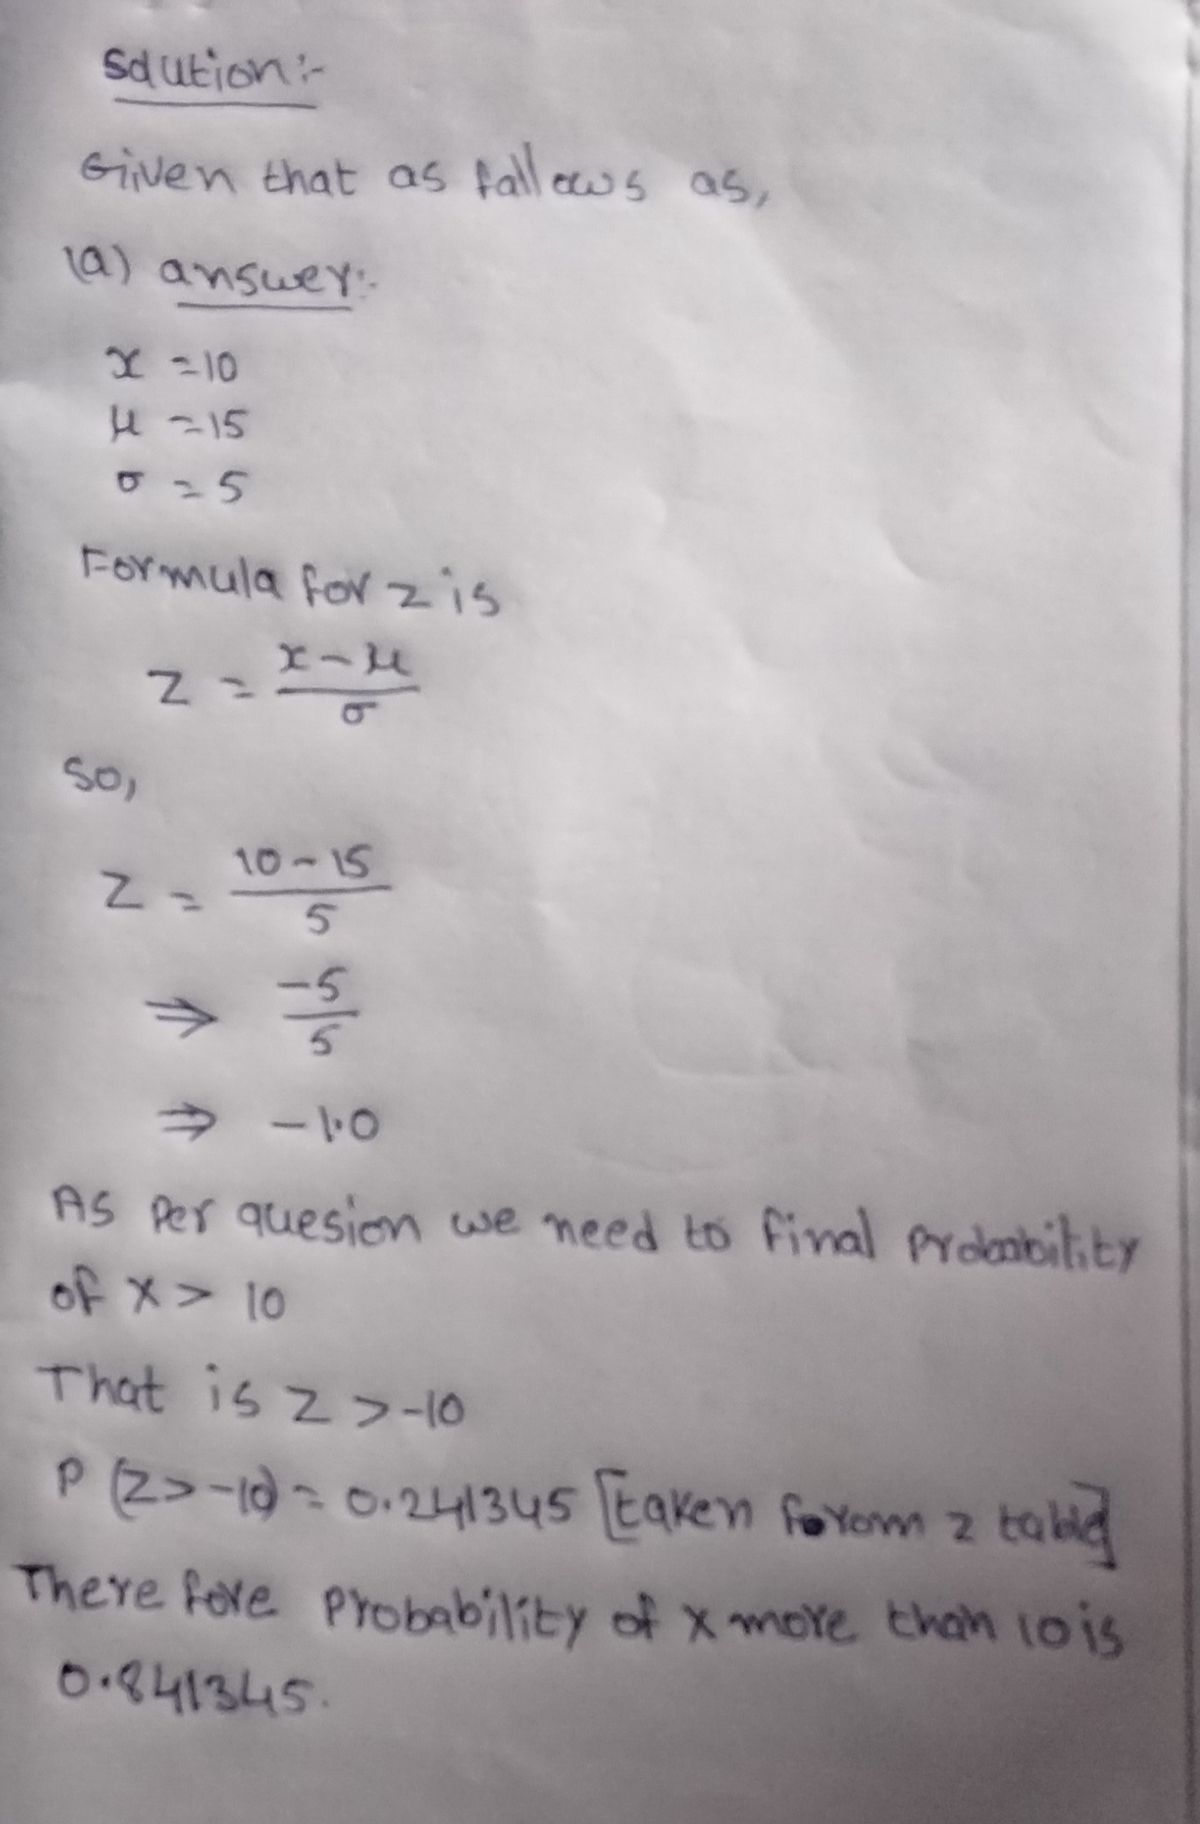 Solution:-
Given that as fallows as,
(a) answer:-
x = 10
μ = 15
σ = 5
Formula for z is
z = (x - μ) / σ
So,
z = (10 - 15) / 5
⇒ -5 / 5
⇒ -1.0
As Per quesion we need to final Probability
of x > 10
That is z > -10
P (z > -10) = 0.241345 [taken forom z table]
There fore Probability of x more than 10 is
0.841345.